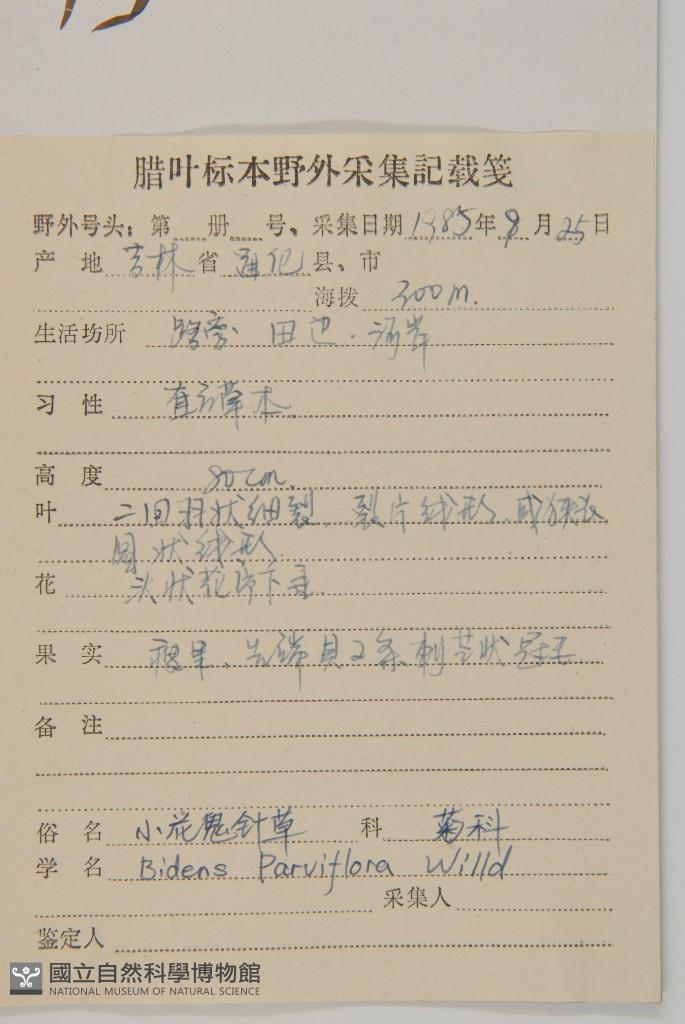 腊叶标本野外采集記载笺
野外号头：第 册 号、采集日期 1985年 8月 25日
产 地 吉林省 通化县、市
海拨 300m.
生活场所 路旁 田边·河岸
习 性 直立草本
高 度 80cm.
叶 二回羽状细裂，裂片线形 或狭长
圆状线形
花 头状花序下垂
果 实 瘦果，先端具2条刺芒状冠毛
备 注
俗 名 小花鬼针草 科 菊科
学 名 Bidens Parviflora Willd
采集人
鉴定人
國立自然科學博物館
NATIONAL MUSEUM OF NATURAL SCIENCE